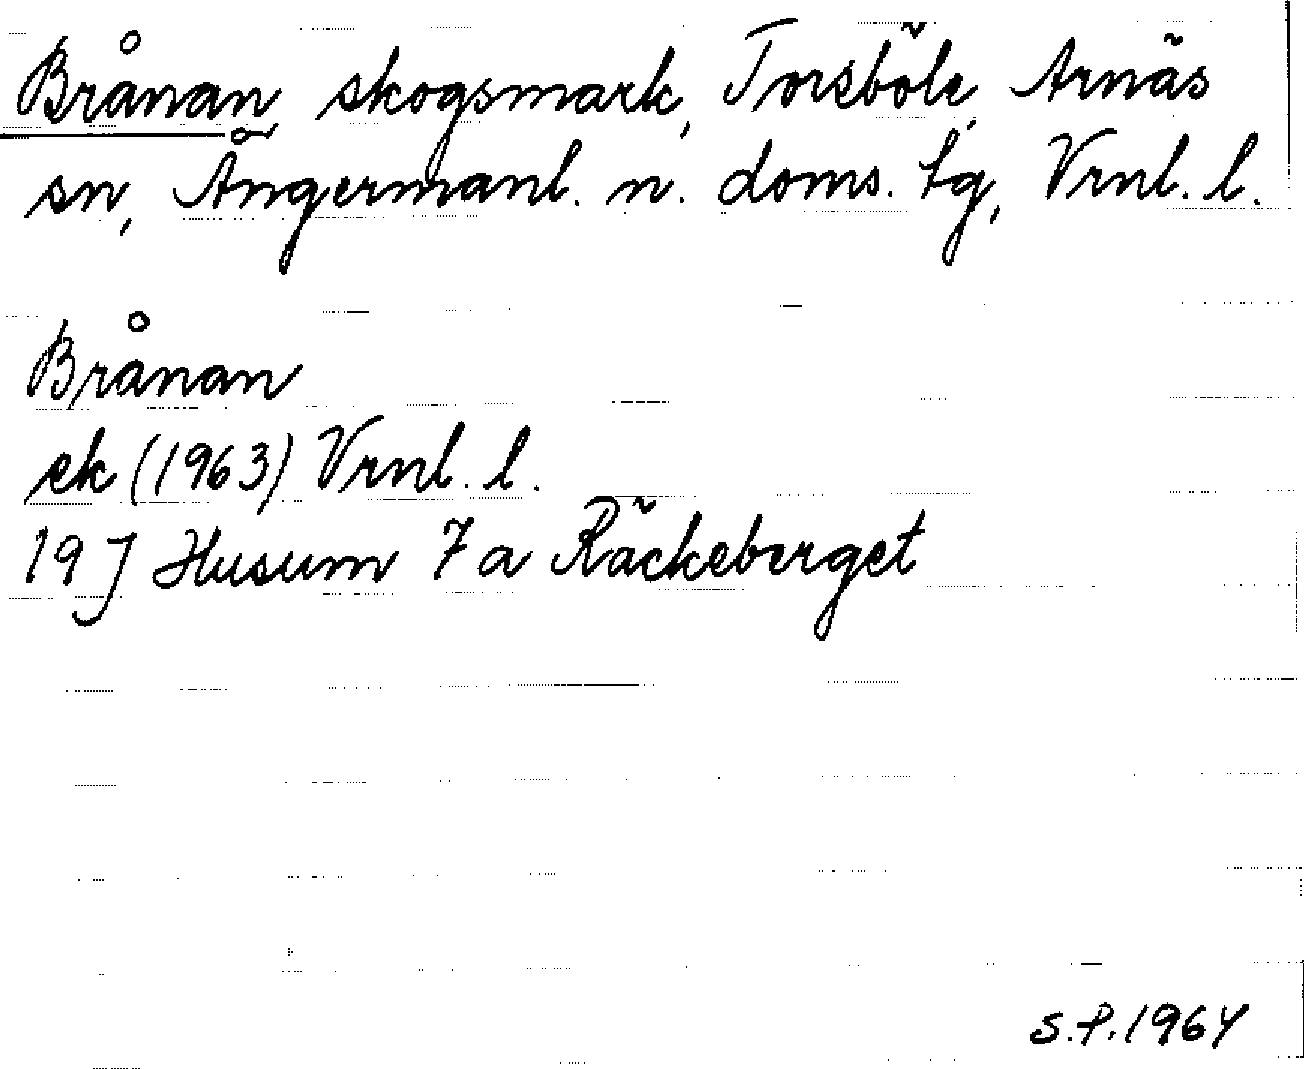 Brånan skogsmark, Torsböle, Arnäs
sn, Ångermanl. n. doms. tg, Vrnl. l.
Brånan
ek (1963) Vrnl. l.
19 J Husum 7 a Räckeberget
S.P. 1964